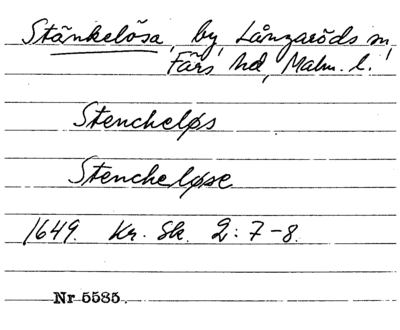 Stänkelösa, by, Långaröds sn,
Färs hd, Malm. l.
Stencheløs
Stencheløse
1649. Kr. Sk. 2: 7-8.
Nr 5585.